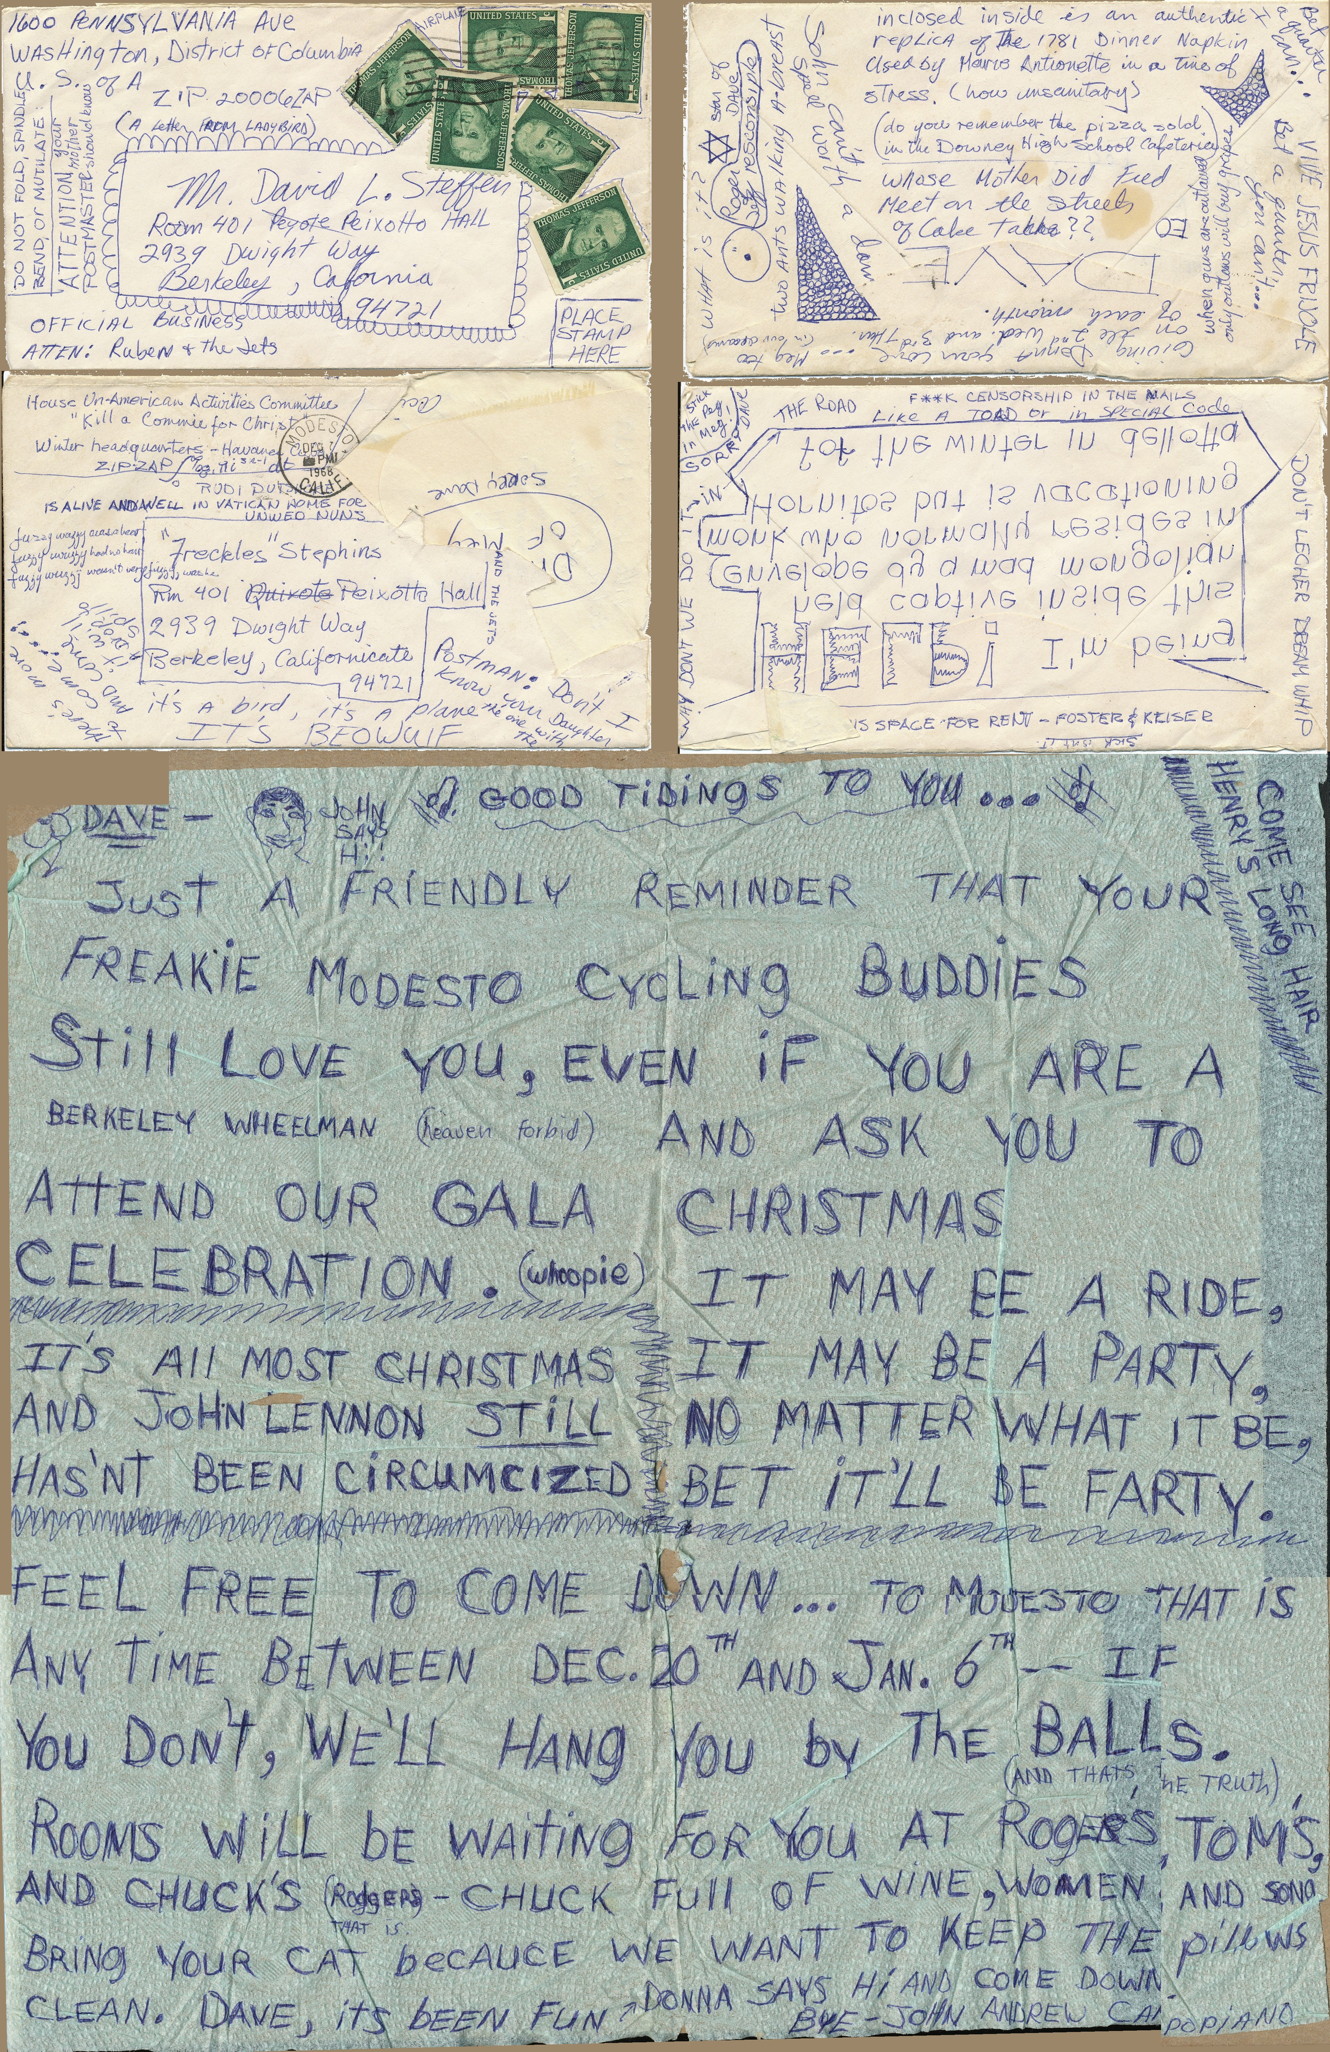 1600 PENNSYLVANIA AVE
WASHington, District of Columbia
U. S. of A
ZIP 20006ZAP
(A Letter FROM LADYBIRD)
AIRPLANE
DO NOT FOLD, SPINDLE,
BEND, OR MUTILATE.
ATTENTION, your
POSTMASTER, mother
should know
Mr. David L. Steffen
Room 401 Peyote Peixotto HALL
2939 Dwight Way
Berkeley, Cafornia
94721
OFFICIAL BUSINESS
ATTEN: Ruben & the Jets
PLACE
STAMP
HERE
UNITED STATES
THOMAS JEFFERSON
UNITED STATES
THOMAS JEFFERSON
UNITED STATES
THOMAS JEFFERSON
UNITED STATES
THOMAS JEFFERSON
UNITED STATES
THOMAS JEFFERSON
UNITED STATES
inclosed inside is an authentic
replica of the 1781 Dinner Napkin
Used by Maurie Antionette in a time of
stress. (how unsanitary)
(do you remember the pizza sold
in the Downey High School Cafeteria)
whose Mother Did Fred
Meet on the Streets
of Cake Takha??
ED
DAVE
WHAT is it?
star of
DAVE
Roger
Soley responsible
two Ants WAlking A-breast
Sohn cain't a
Spod worth a
damn
when guns are outlawed
only outlaws will buy grapes
Bet a quarter
you can't...
Bet
a quarter
I can!..
VIVE JESUS FRIJOLE
Giving Donna your love
on the 2nd Wed. and 3rd Thur.
of each month.
... Meg too
(in our dreams)
House Un-American Activities Committee
"Kill a Commie for Christ"
Winter headquarters - Havana, Cuba
ZIP-ZAP
RUDI
IS ALIVE AND WELL IN VATICAN HOME FOR
UNWED NUNS
MODESTO
DEC 7
PM
1968
CALIF
fuzzy wuzzy was a bear
fuzzy wuzzy had no hair
fuzzy wuzzy wasn't very fuzzy was he
"Freckles" Stephins
Rm 401 Quixote Peixotto Hall
2939 Dwight Way
Berkeley, Californicate
94721
AND THE JETS
Sorry Dave
Postman: Don't I
know your Daughter
the one with
the
it's a bird, it's A plane
IT'S BEOWULF
STICK
THE Peg
in Meg!
SORRY DAVE
THE ROAD
F**K CENSORSHIP IN THE MAILS
Like A TOAD or in SPECIAL Code
WHY DON'T WE DO IT IN
HELP! I'm being
held captive inside this
envelope by a mad mongolian
monk who normally resides in
Hornitos but is vacationing
for the winter in
DON'T LECHER DREAM WHIP
IS SPACE FOR RENT - FOSTER & KEISER
Sick isn't it
DAVE —
JOHN
SAYS
Hi!
GOOD TIDINGS TO YOU...
COME SEE
HENRY'S LONG HAIR
JUST A FRIENDLY REMINDER THAT YOUR
FREAKIE MODESTO CYCLING BUDDIES
STILL LOVE YOU, EVEN IF YOU ARE A
BERKELEY WHEELMAN (heaven forbid) AND ASK YOU TO
ATTEND OUR GALA CHRISTMAS
CELEBRATION. (whoopie)
IT MAY BE A RIDE,
IT MAY BE A PARTY,
NO MATTER WHAT IT BE,
BET IT'LL BE FARTY.
IT'S All MOST CHRISTMAS
AND JOHN LENNON STILL
HAS'NT BEEN CIRCUMCIZED
FEEL FREE TO COME DOWN... TO MODESTO THAT IS
ANY TIME BETWEEN DEC. 20TH AND JAN. 6TH — IF
YOU DON'T, WE'LL HANG YOU by The BALLS.
(AND THATS THE TRUTH)
ROOMS WILL bE WAITING FOR YOU AT ROGERS, TOM'S,
AND CHUCK'S (RODGERS) - CHUCK FULL OF WINE, WOMEN, AND SONG
THAT IS
BRING YOUR CAT bECAUCE WE WANT TO KEEP THE pillows
CLEAN. DAVE, its BEEN FUN
DONNA SAYS Hi AND COME DOWN.
BYE - JOHN ANDREW CAMPOPIANO